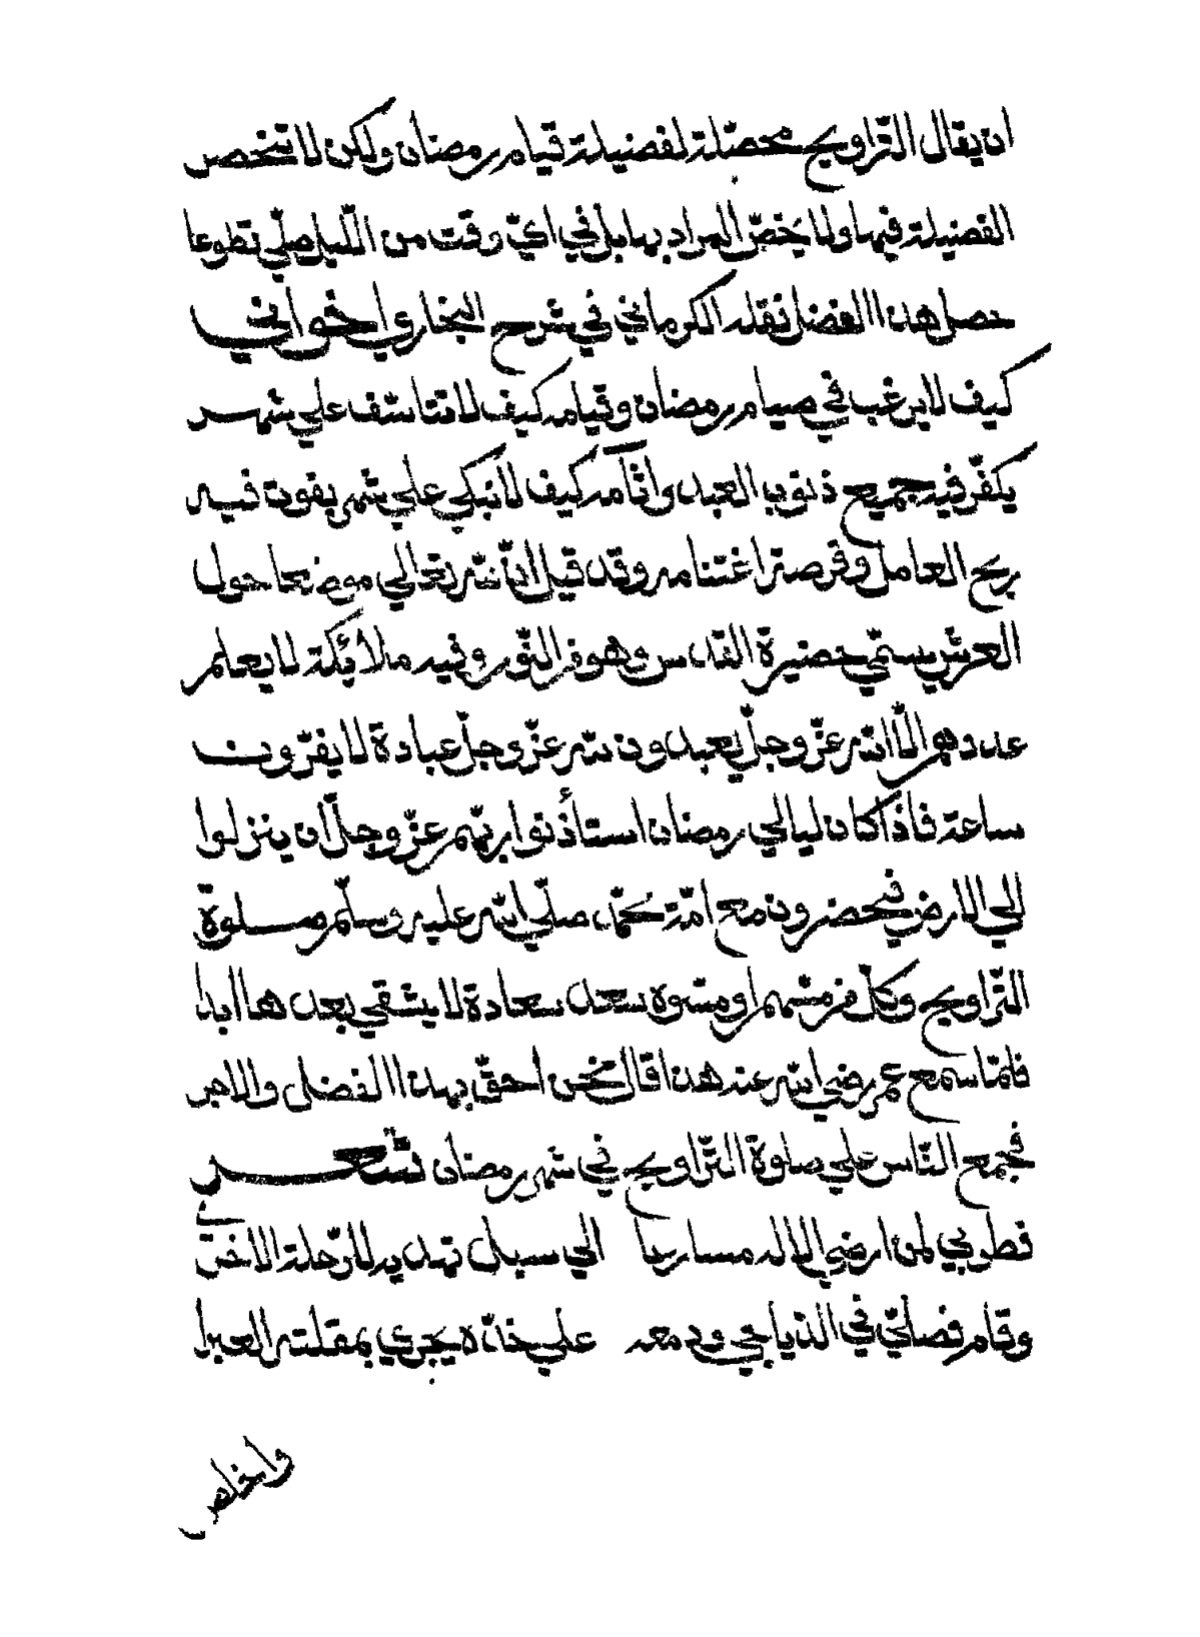 ان يقال التّراويح محصّلة لفضيلة قيام رمضان ولكن لا تنخص
الفضيلة فيها ولا يخصّ المراد بها بل في ايّ وقت من اللّيل صلّي تطوعا
حصل هذا الفضل نقله الكرماني في شرح البخاري اخواني
كيف لا يرغب في صيام رمضان وقيامه كيف لا نتاسّف علي شهر
يكفّر فيه جميع ذنوب العبد وآثامه كيف لا نبكي علي شهر يفوت فيه
ربح العامل وفرصة اغتنامه وقد قيل انّ لله تعالي موضعا حول
العرش يسمّي حضيرة القدس وهو من النّور وفيه ملائكة لا يعلم
عددهم الّا الله عزّ وجلّ يعبدون الله عزّ وجلّ عبادة لا يفترون
ساعة فاذا كان ليالي رمضان استأذنوا ربّهم عزّ وجلّ ان ينزلوا
الي الارض فيحضرون مع امّة محمّد صلّي الله عليه وسلّم صلوة
التّراويح وكلّ من مسّهم او مسّوه سعد سعادة لا يشقي بعدها ابدا
فلمّا سمع عمر رضي الله عنه هذا قال نحن أحقّ بهذا الفضل والاجر
فجمع النّاس علي صلوة التّراويح في شهر رمضان شعر
فطوبي لمن ارضي الاله مسارعا الي سبل تهديه للرّحلة الاخري
وقام فصلّي في الدّياجي ودمعه علي خدّه يجري بمقلته العبرا
واخلص